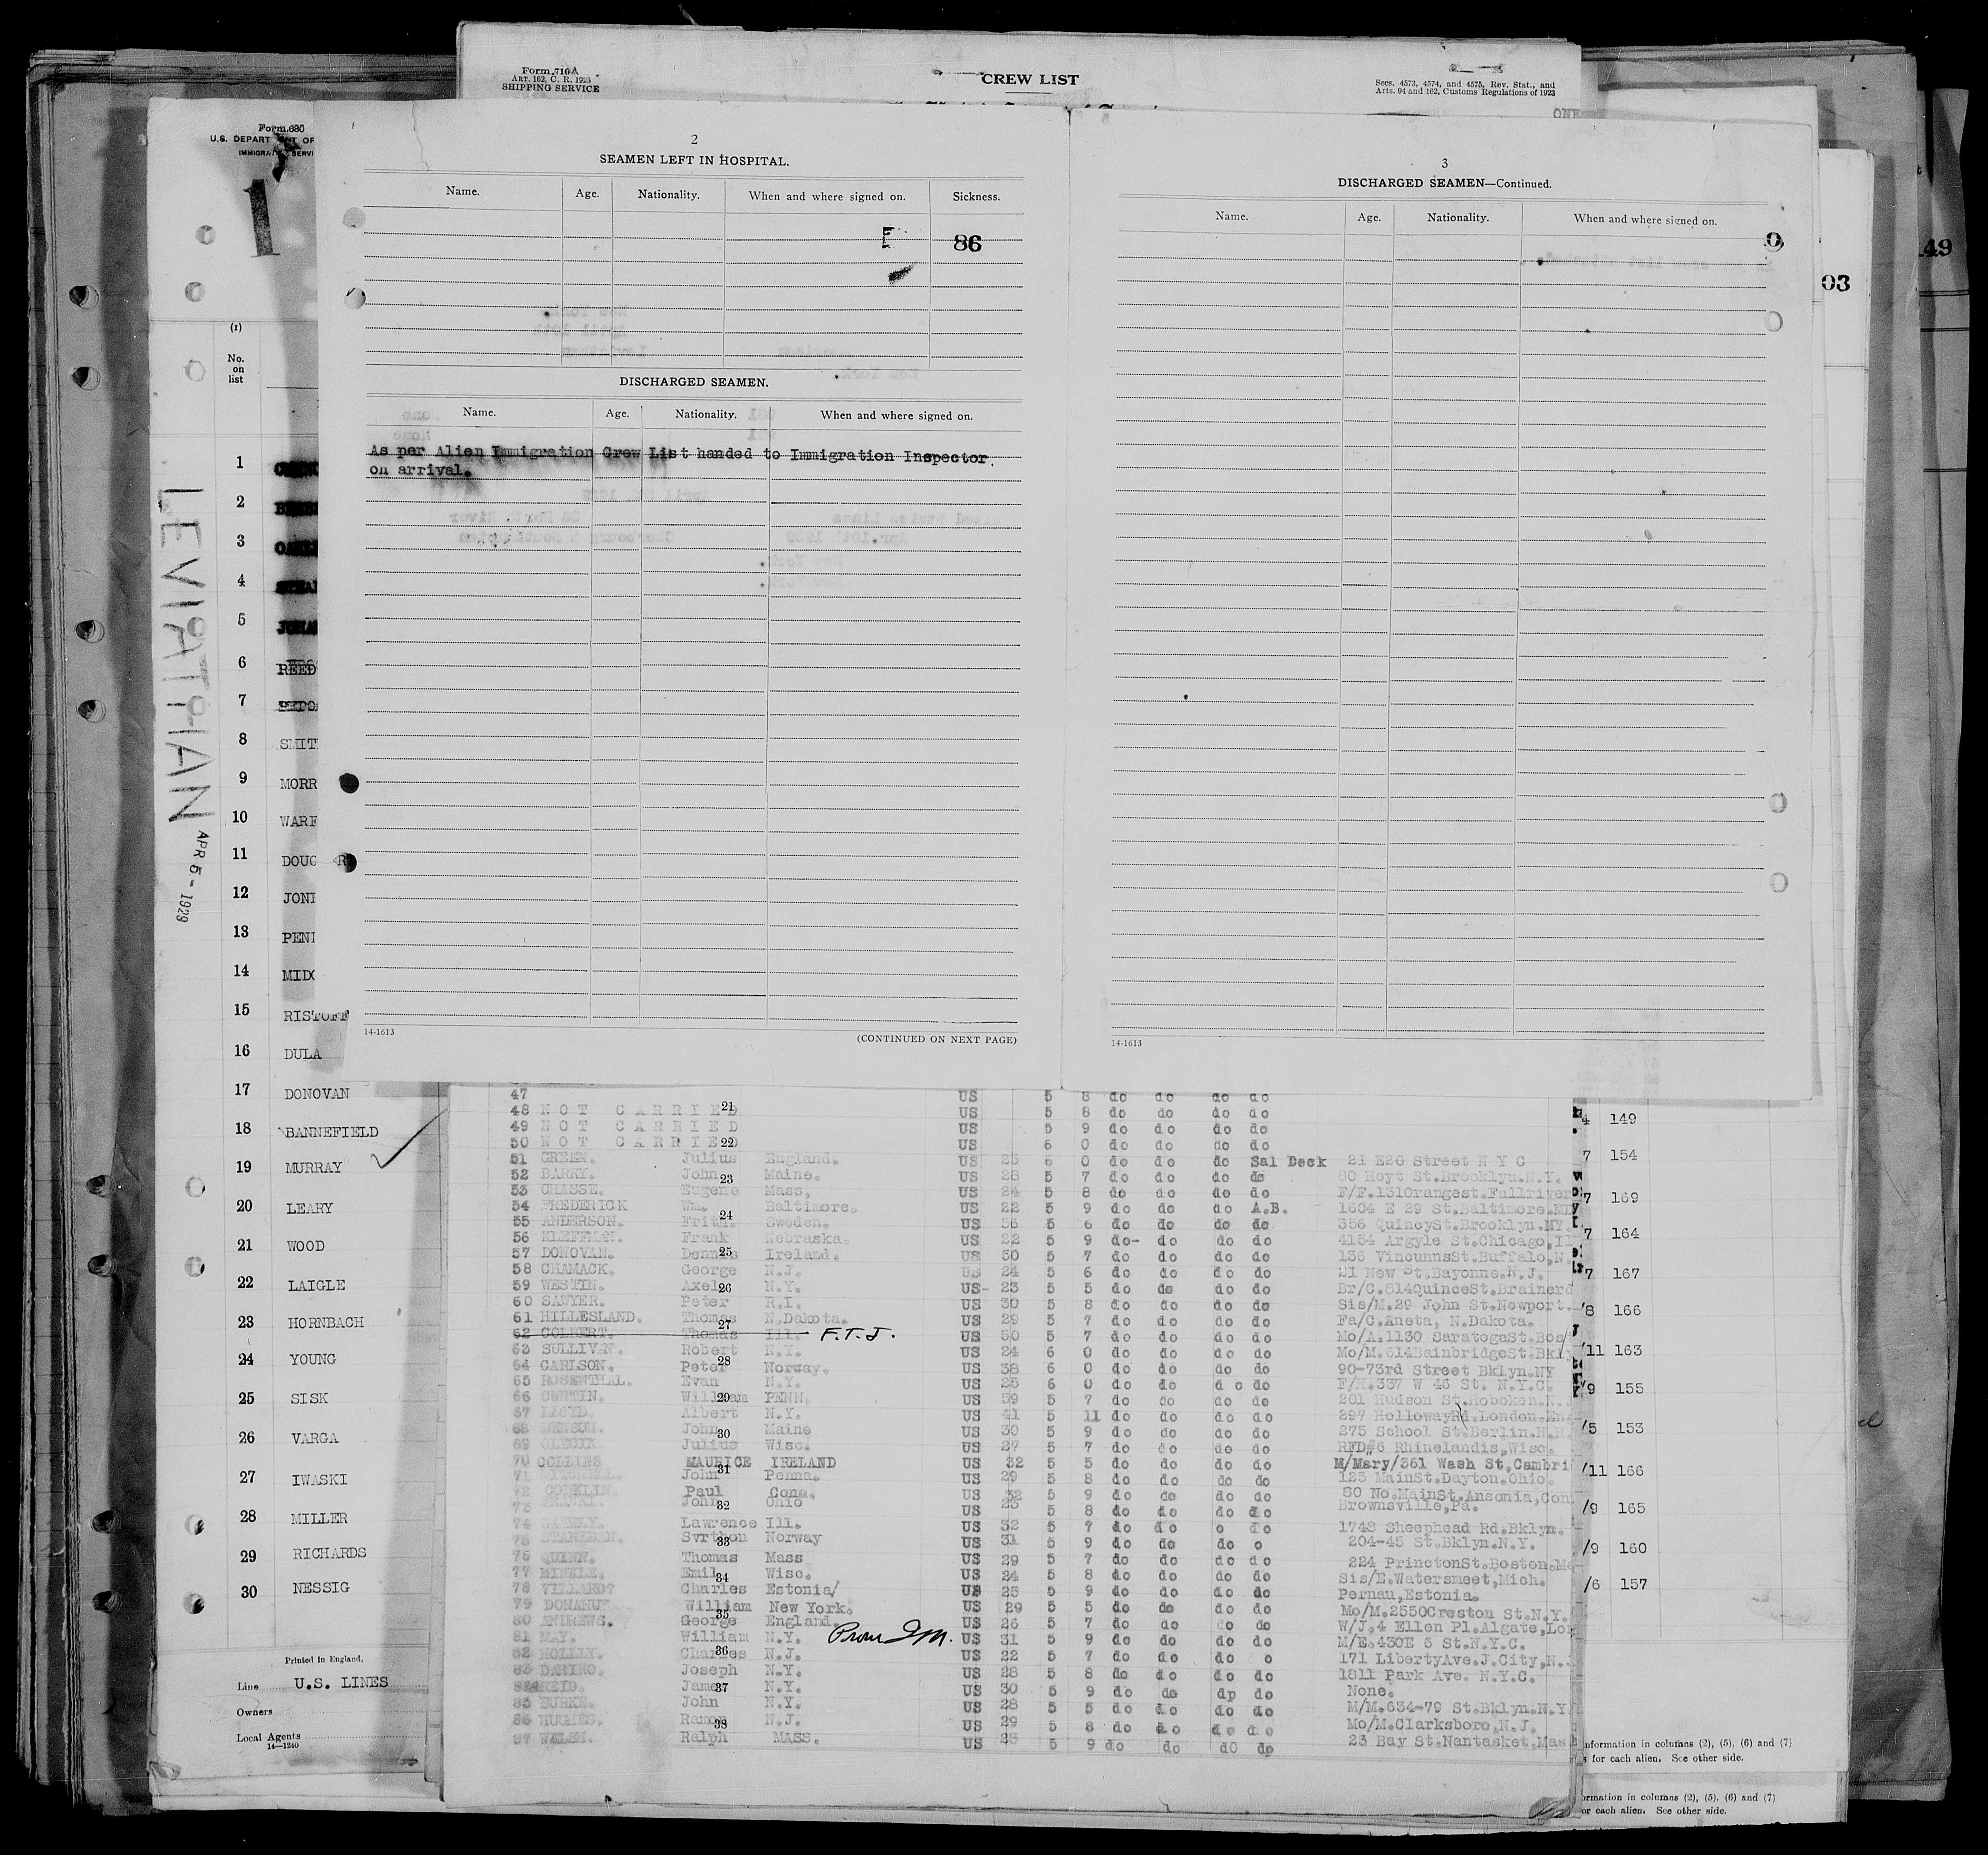 Form 716A
ART. 162, C. R. 1923
SHIPPING SERVICE
CREW LIST
Secs. 4573, 4574, and 4575, Rev. Stat., and
Arts. 94 and 162, Customs Regulations of 1923
Form 680
U.S. DEPART
1
LEVIATHAN
APR 5 - 1929
2
SEAMEN LEFT IN HOSPITAL.
Name. Age. Nationality. When and where signed on. Sickness.
86
DISCHARGED SEAMEN.
Name. Age. Nationality. When and where signed on.
As per Alien Immigration Crew List handed to Immigration Inspector
on arrival.
14-1613
(CONTINUED ON NEXT PAGE)
3
DISCHARGED SEAMEN—Continued.
Name. Age. Nationality. When and where signed on.
0
14-1613
49
03
(1)
No.
on
list
1
2
3
4
5
6 REED
7
8 SMIT
9 MORR
10 WARF
11 DOUG
12 JONE
13 PEN
14 MID
15 RISTOFF
16 DULA
17 DONOVAN
18 BANNEFIELD
19 MURRAY
20 LEARY
21 WOOD
22 LAIGLE
23 HORNBACH
24 YOUNG
25 SISK
26 VARGA
27 IWASKI
28 MILLER
29 RICHARDS
30 NESSIG
Printed in England.
Line U.S. LINES
Owners
Local Agents
14—1240
47 US 5 8 do do do do
48 NOT CARRIED US 5 8 do do do do
49 NOT CARRIED US 5 9 do do do do
50 NOT CARRIED US 6 0 do do do do
51 GREEN. Julius England. US 25 6 0 do do do Sal Deck 21 E20 Street N Y C
52 BARRY. John Maine. US 28 5 7 do do do do 80 Hoyt St.Brooklyn.N.Y.
53 CHASSE. Eugene Mass, US 24 5 8 do do do do F/F.131Orangest.Fallriver
54 FREDERICK Wm. Baltimore. US 22 5 9 do do do A.B. 1604 E 29 St.Baltimore.MD
55 ANDERSON. Frith. Sweden. US 56 5 6 do do do do 356 QuincySt.Brooklyn.NY.
56 KLEFFMAN. Frank Nebraska. US 22 5 9 do- do do do 4154 Argyle St.Chicago,Il
57 DONOVAN. Dennis Ireland. US 50 5 7 do do do do 136 VincunnsSt.Buffalo,N.
58 CHAMACK. George N.J. US 24 5 6 do do do do 21 New St.Bayonne.N.J.
59 WESTIN. Axel N.Y. US- 23 5 5 do do do do Br/C.814QuinceSt.Brainerd
60 SAWYER. Peter R.I. US 30 5 8 do do do do Sis/M.29 John St.Newport.
61 HILLESLAND. Thomas N.Dakota. US 29 5 7 do do do do Fa/C.Aneta, N.Dakota.
62 Thomas Ill. F.T.J. US 50 5 7 do do do do Mo/A.1130 SaratogaSt.Bos
63 SULLIVAN. Robert N.Y. US 24 6 0 do do do do Mo/M.614BainbridgeSt.Bkly
64 CARLSON. Peter Norway. US 38 6 0 do do do do 90-73rd Street Bklyn.NY
65 ROSENTHAL. Evan N.Y. US 25 6 0 do do do do F/H.337 W 46 St. N.Y.C.
66 CURTIN. William PENN. US 59 5 7 do do do do 201 Hudson St.Hoboken.N.J
67 LLOYD. Albert N.Y. US 41 5 11 do do do do 297 HollowayRd.London.Eng
68 John Maine US 30 5 9 do do do do 275 School St.Berlin.N.H.
69 Julius Wisc. US 27 5 7 do do do do RFD#6 Rhinelandis,Wisc.
70 COLLINS MAURICE IRELAND US 32 5 5 do do do do M/Mary/361 Wash St.Cambri
71 John Penna. US 29 5 8 do do do do 123 MainSt.Dayton.Ohio.
72 CONKLIN. Paul Conn. US 32 5 9 do do do do 80 No.MainSt.Ansonia,Con
73 John Ohio US 23 5 8 do do do do Brownsville,Pa.
74 Lawrence Ill. US 32 5 7 do do o do 1748 Sheephead Rd.Bklyn.
75 Svrthon Norway US 31 5 9 do do do o 204-45 St.Bklyn.N.Y.
76 QUINN. Thomas Mass US 29 5 7 do do do do 224 PrinctonSt.Boston.Ma
77 HINKLE. Emil Wisc. US 24 5 8 do do do do Sis/E.Watersmeet,Mich.
78 VILLARD? Charles Estonia/ US 25 5 9 do do do do Pernau,Estonia.
79 DONAHUE William New York. US 29 5 5 do do do do Mo/M.2550Creston St.N.Y.
80 ANDREWS. George England. US 26 5 7 do do do do W/J.4 Ellen Pl.Algate,Lon
81 MAY. William N.Y. US 31 5 9 do do do do M/E.430E 6 St.N.Y.C.
82 HOLLLY. Charles N.J. US 22 5 7 do do do o 171 LibertyAve.J.City,N.J
83 Joseph N.Y. US 28 5 8 do do do do 1811 Park Ave. N.Y.C.
84 REID. James N.Y. US 30 5 9 do do dp do None.
85 BURKE. John N.Y. US 28 5 5 do do do do M/M.634-79 St.Bklyn.N.Y
86 HUGHES. Ramon N.J. US 29 5 8 do do do do Mo/M.Clarksboro,N.J.
87 WELSH. Ralph MASS. US 23 5 9 do do dO do 23 Bay St.Nantasket.Mas
21
22
23
24
25
26
27
28
29
30
31
32
33
34
35
36
37
38
4 149
7 154
7 169
7 164
7 167
/8 166
/11 163
/9 155
/5 153
/11 166
/9 165
/9 160
/6 157
nformation in columns (2), (5), (6) and (7)
s for each alien. See other side.
ormation in columns (2), (5), (6) and (7)
or each alien. See other side.